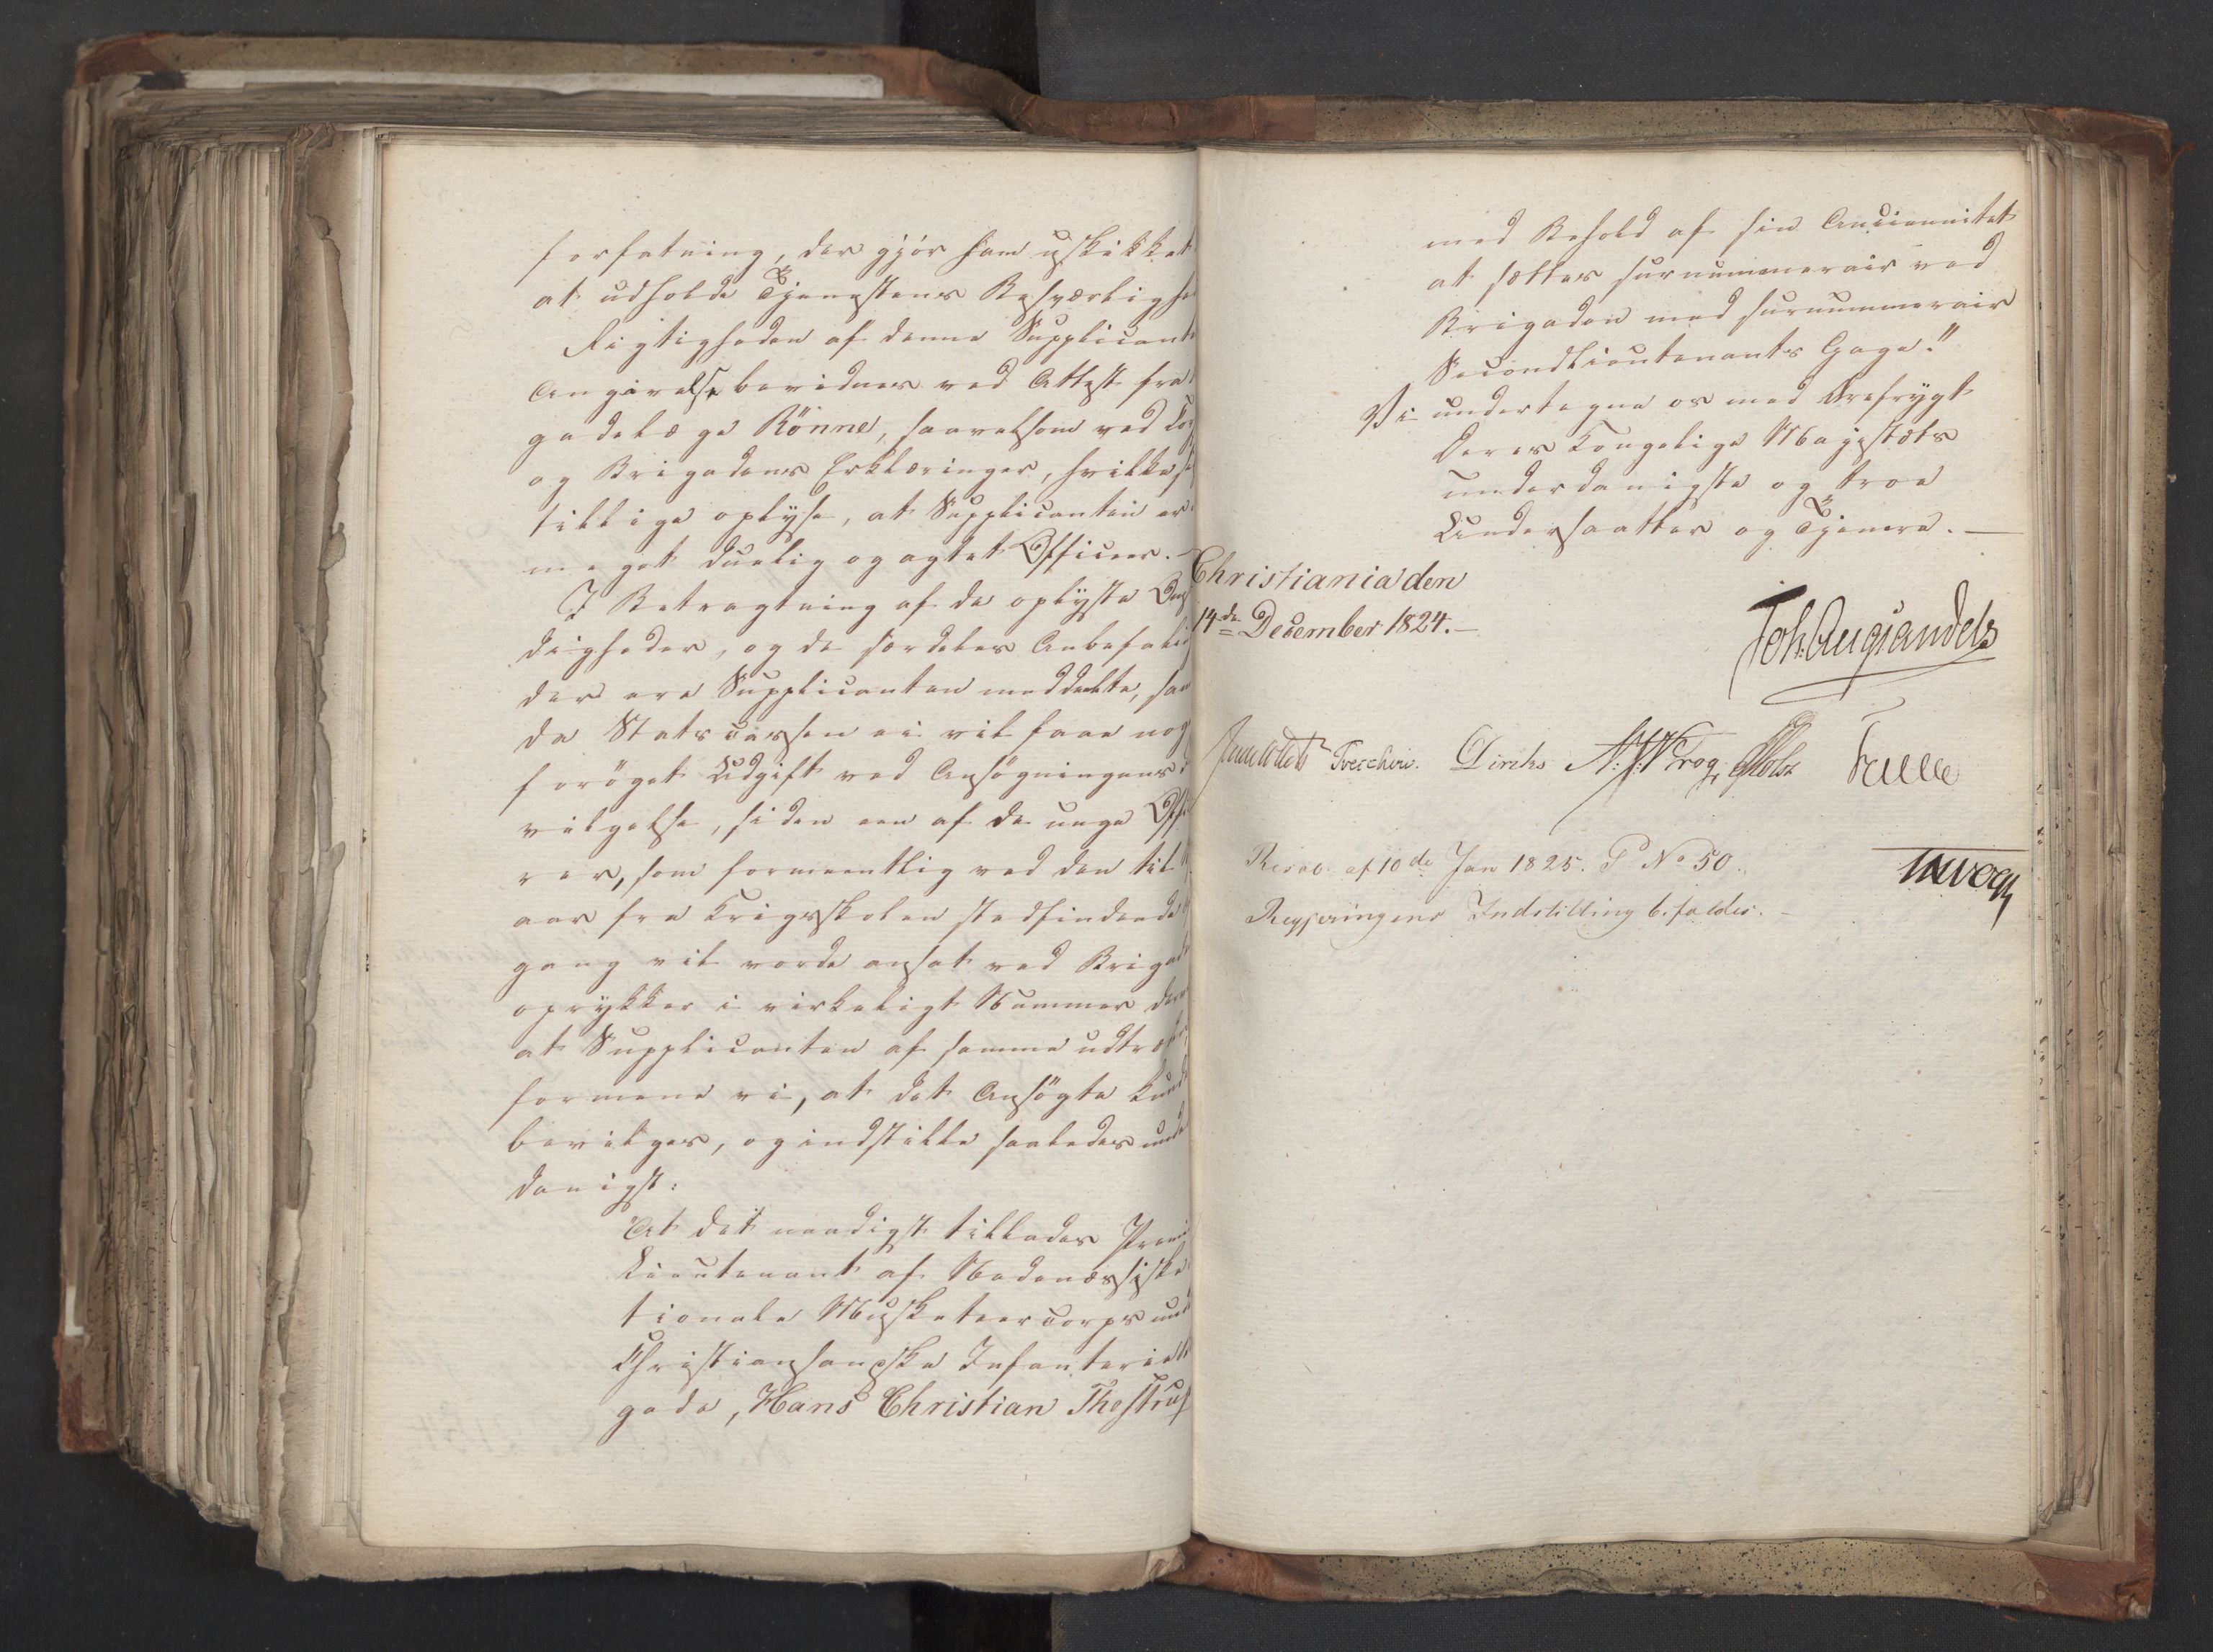 forfatning, der gjør ham uskikket
at udholde Tjenestens Besværlighe
Rigtigheden af denne Supplicante
Angivelse bevidnes ved Attest fra
gadelæge Rönne, saavelsom ved Co
og Brigadens Erklæringer, hvilke
tillige oplyse, at Supplicanten er
meget duelig og agtet Officeer.
I Betragtning af de oplyste Om
digheder, og de særdeles Anbefalin
der ere Supplicanten meddeelte, sam
da Statscassen ei vil faae nog
forøget Udgift ved Ansøgningens
vilgelse, siden een af de unge Offi
rer, som formeentlig ved den til
aar fra Krigsskolen stedfindende
gang vil vorde ansat ved Brigad
oprykker i virkeligt Nummer der
at Supplicanten af samme udtræ
formene vi, at det Ansøgte kund
bevilges, og indstille saaledes und
danigst:
"At det naadigst tillades Premi
Lieutenant af Nedenæssiske
tionale Musketeercorps und
Christiansandske Infanterie
gade, Hans Christian Thestrup
med Behold af sin Anciennitet
at sættes surnummerair ved
Brigaden med surnummerair
Secondlieutenants Gage."
Vi undertegne os med Ærefrygt
Deres Kongelige Majestæts
underdanigste og troe
Undersaatter og Tjenere. —
Christiania den
14de December 1824. —
Joh: Aug: Sandels
Treschow. Diriks A: J: Krog Holst
Resol. af 10de Jan 1825. P No 50.
Regjeringens Indstilling bifaldes. –